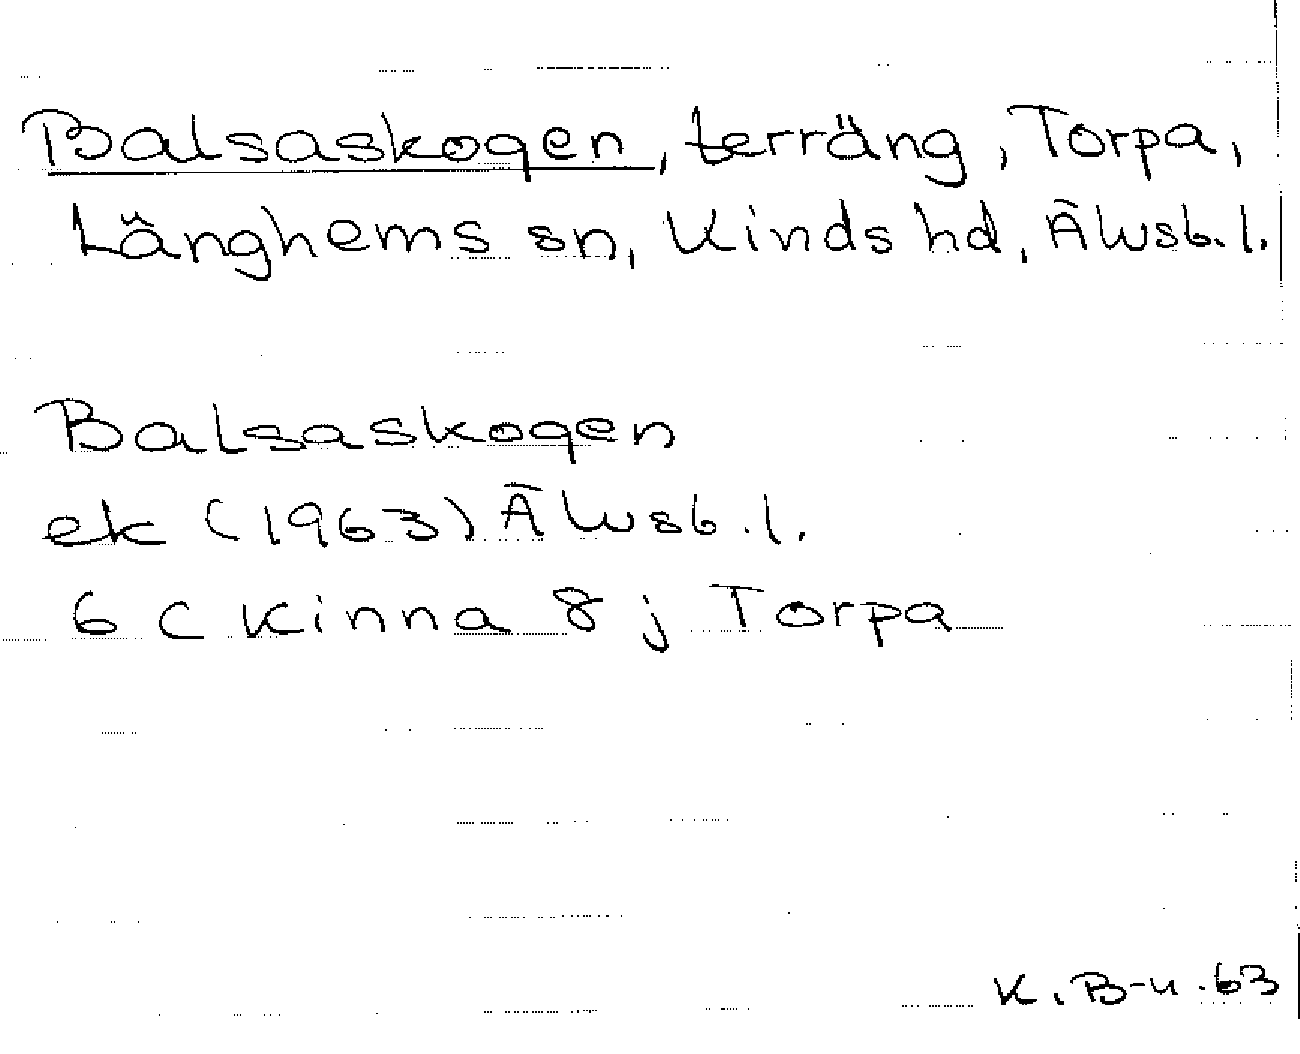 Balsaskogen, terräng, Torpa,
Länghems sn, Kinds hd, Älvsb. l.
Balsaskogen
ek (1963) Älvsb. l.
6 C Kinna 8 j Torpa
K. B-n. 63